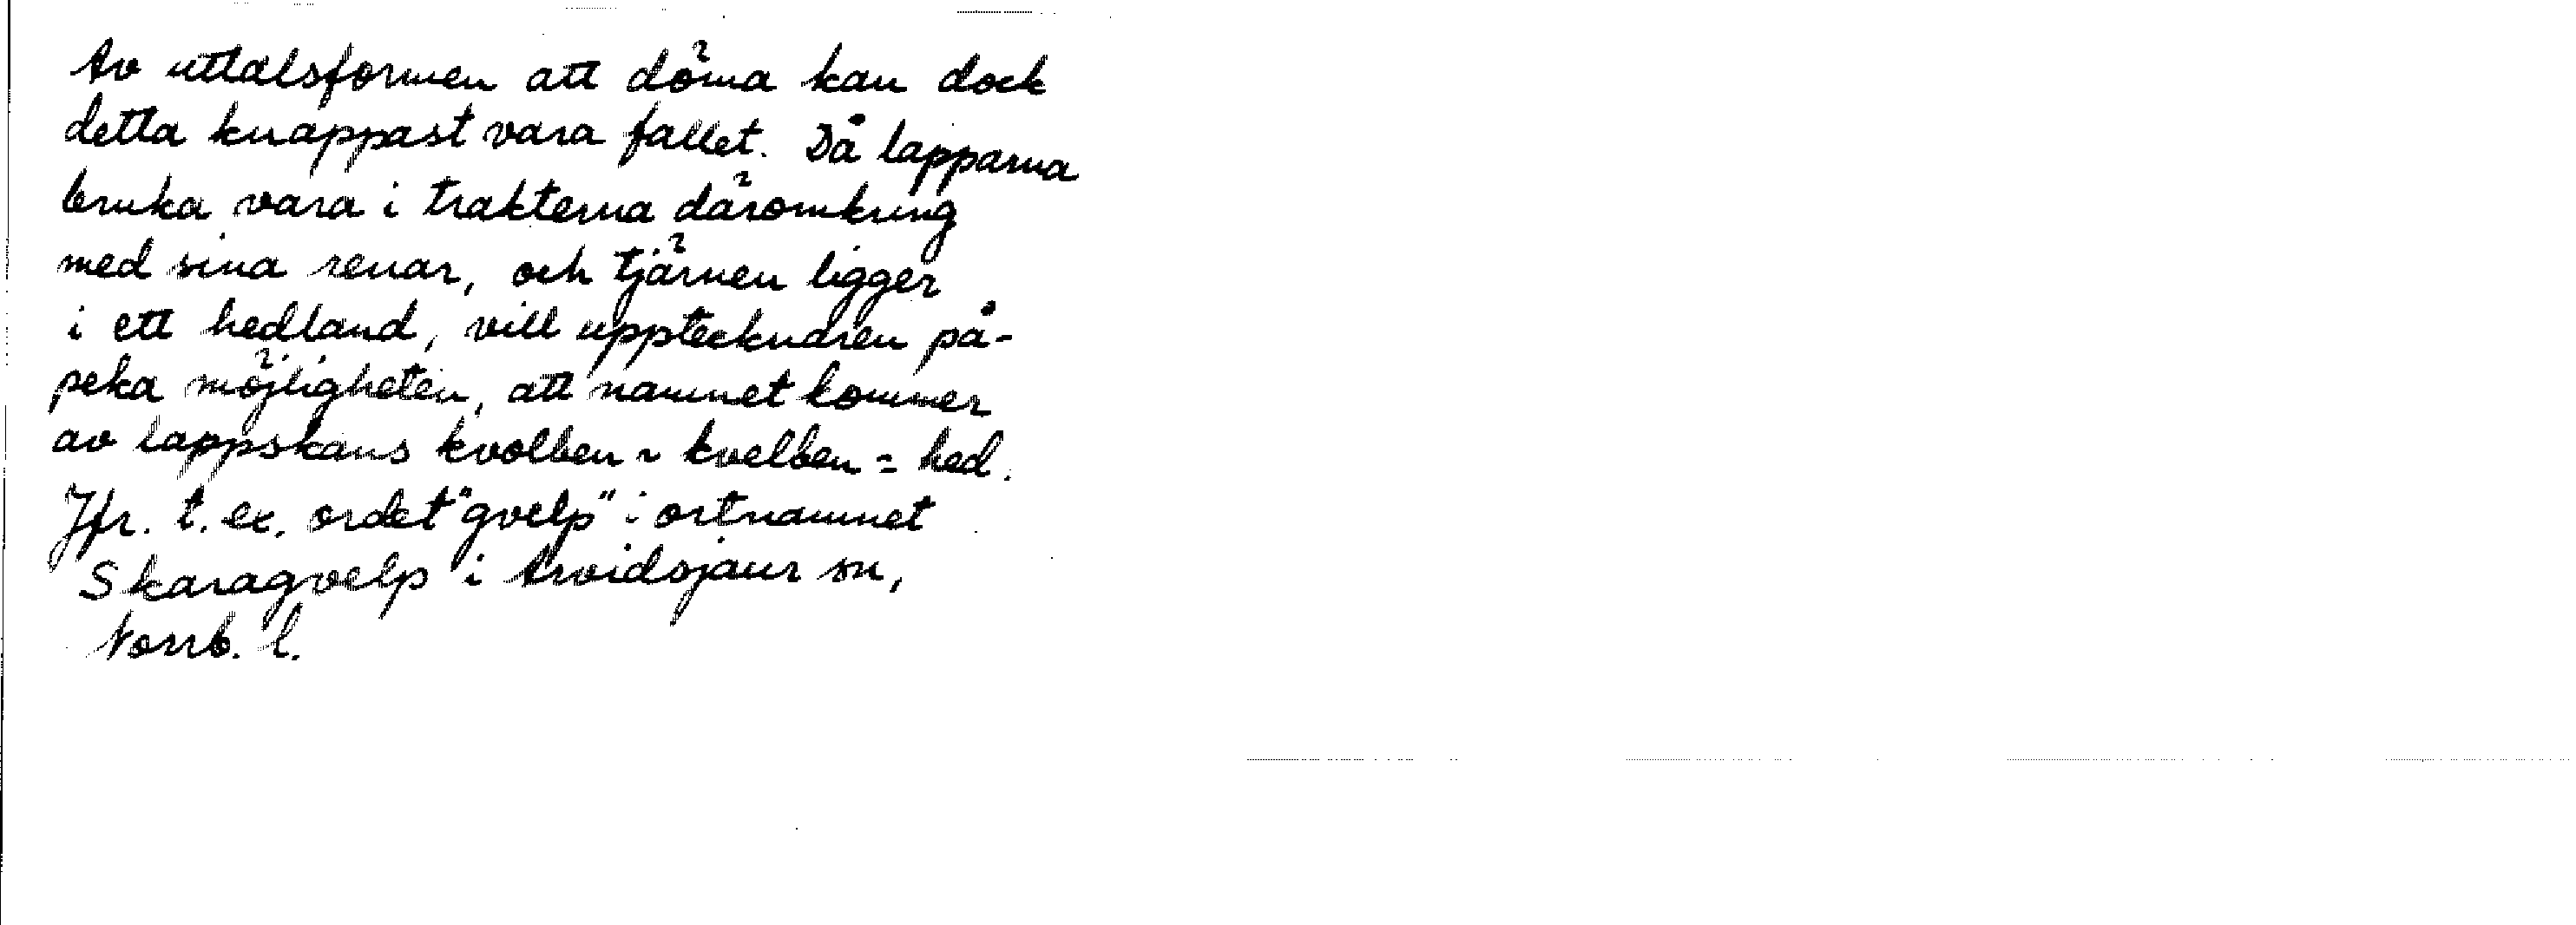 Av uttalsformen att döma kan dock
detta knappast vara fallet. Då lapparna
bruka vara i trakterna däromkring
med sina renar, och tjärnen ligger
i ett hedland, vill upptecknaren på-
peka möjligheten, att namnet kommer
av lappskans kvolben ~ kvelben = hed.
Jfr. t. ex. ordet "gvelp" i ortnamnet
Skaragvelp i Arvidsjaur sn,
Norrb. l.